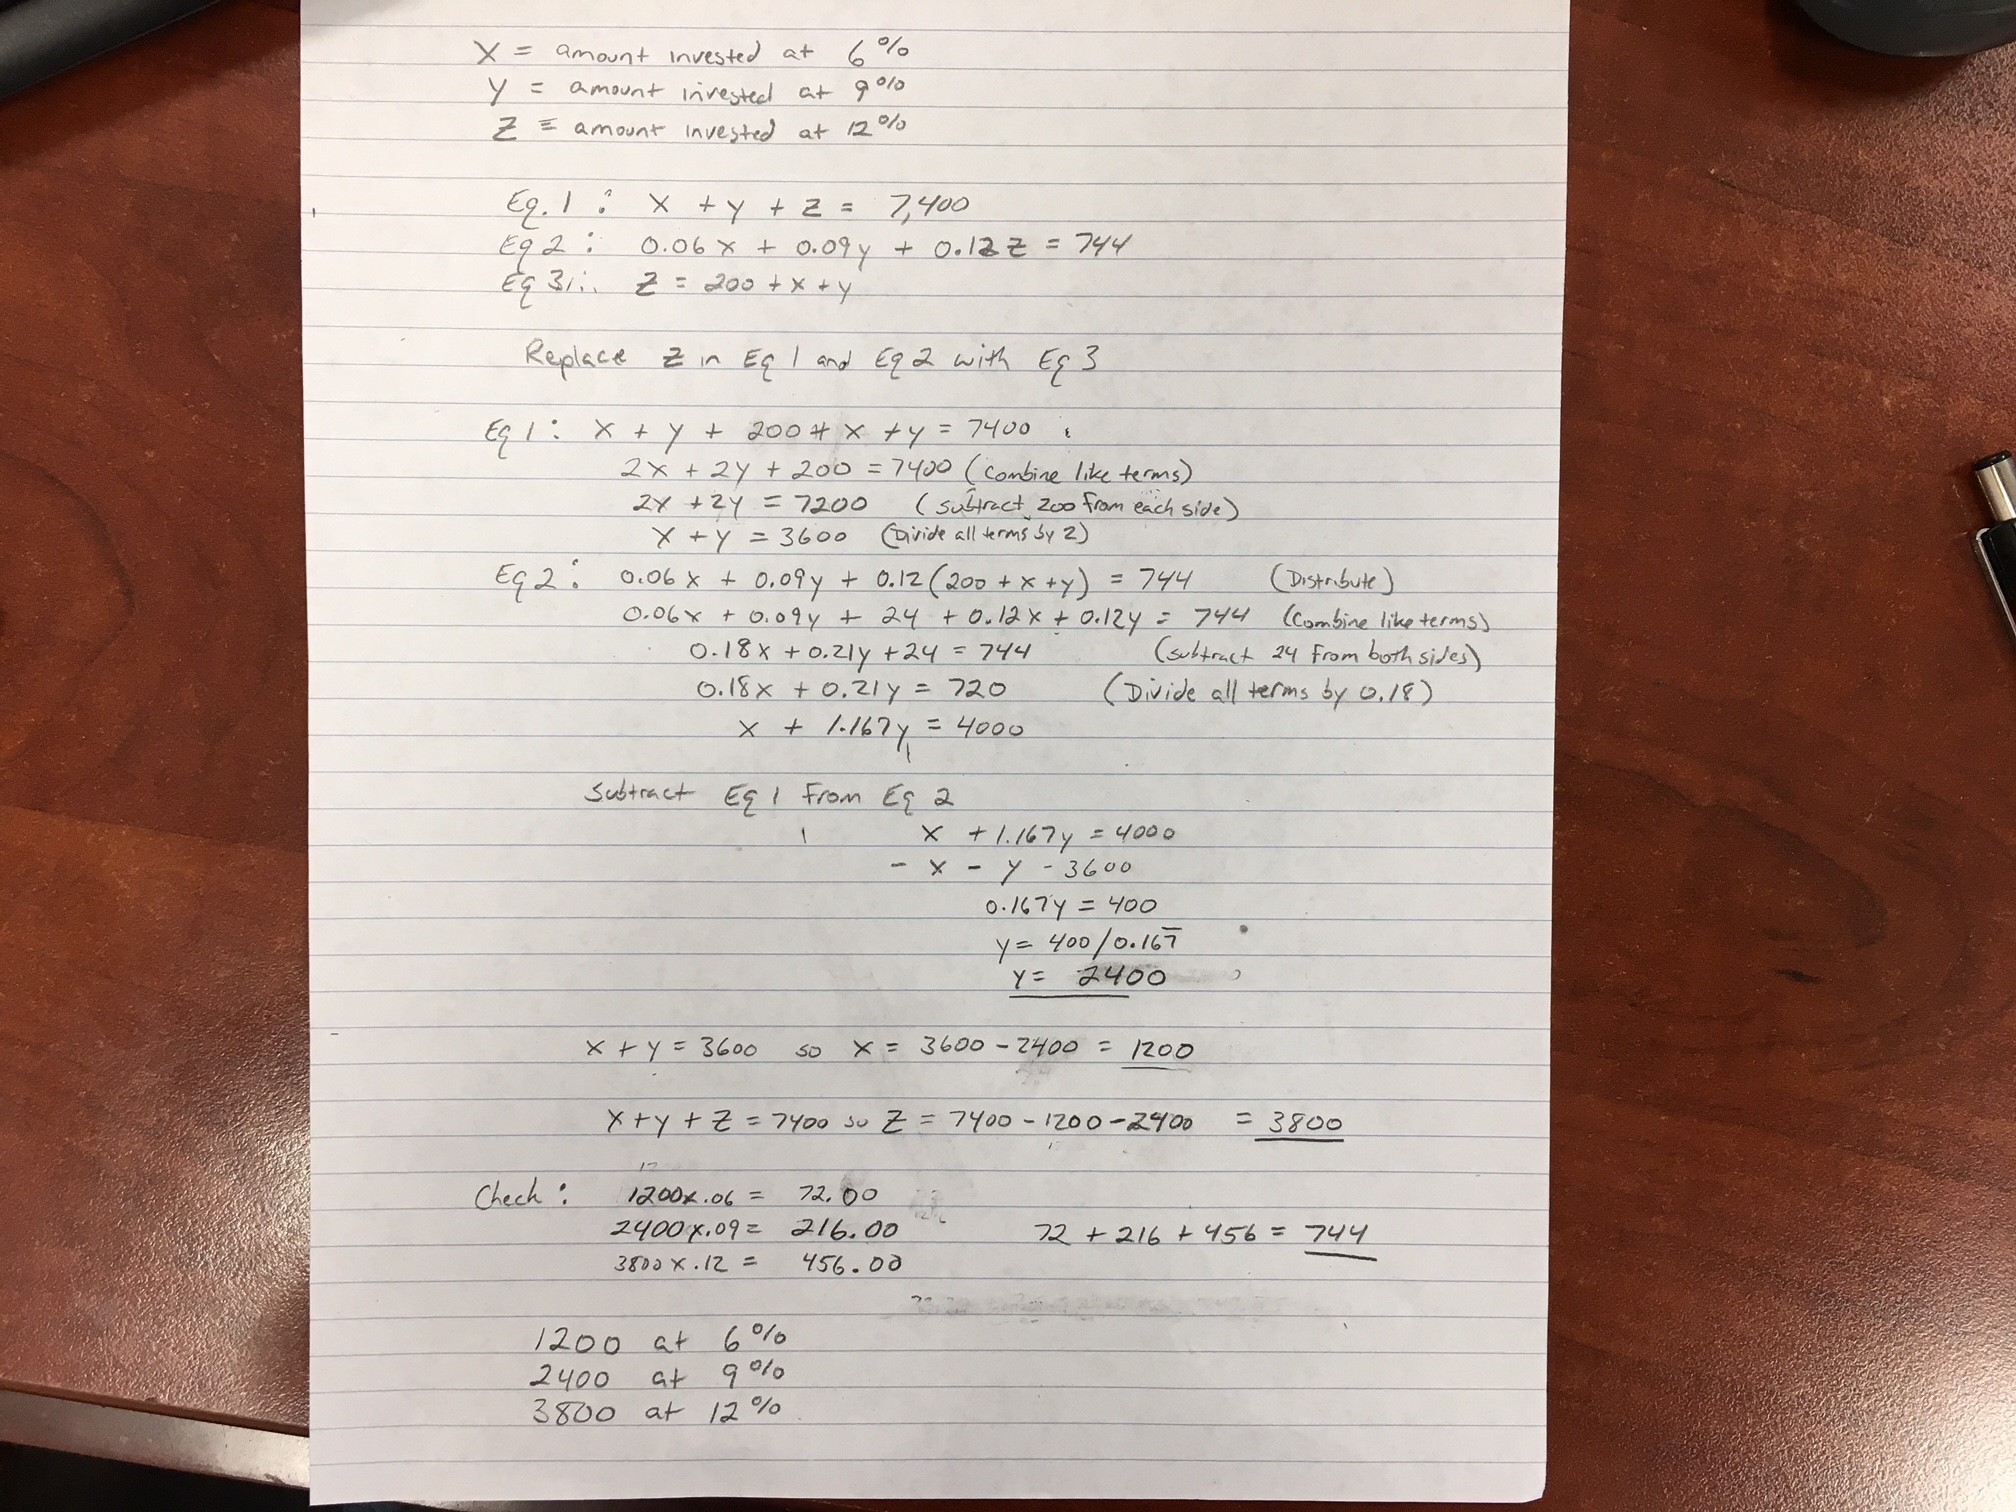 X = amount invested at 6%
Y = amount invested at 9%
Z = amount invested at 12%
Eq. 1 : X + y + z = 7,400
Eq 2 : 0.06x + 0.09y + 0.12z = 744
Eq 3: z = 200 + x + y
Replace z in Eq 1 and Eq 2 with Eq 3
Eq 1 : X + y + 200 + x + y = 7400
2x + 2y + 200 = 7400 (combine like terms)
2x + 2y = 7200 (subtract 200 from each side)
X + y = 3600 (Divide all terms by 2)
Eq 2 : 0.06x + 0.09y + 0.12(200 + x + y) = 744 (Distribute)
0.06x + 0.09y + 24 + 0.12x + 0.12y = 744 (Combine like terms)
0.18x + 0.21y + 24 = 744 (subtract 24 from both sides)
0.18x + 0.21y = 720 (Divide all terms by 0.18)
x + 1.167y = 4000
Subtract Eq 1 from Eq 2
x + 1.167y = 4000
- x - y - 3600
0.167y = 400
y = 400/0.167
y = 2400
x + y = 3600 so x = 3600 - 2400 = 1200
x + y + z = 7400 so z = 7400 - 1200 - 2400 = 3800
Check : 1200x.06 = 72.00
2400x.09 = 216.00 72 + 216 + 456 = 744
3800x.12 = 456.00
1200 at 6%
2400 at 9%
3800 at 12%